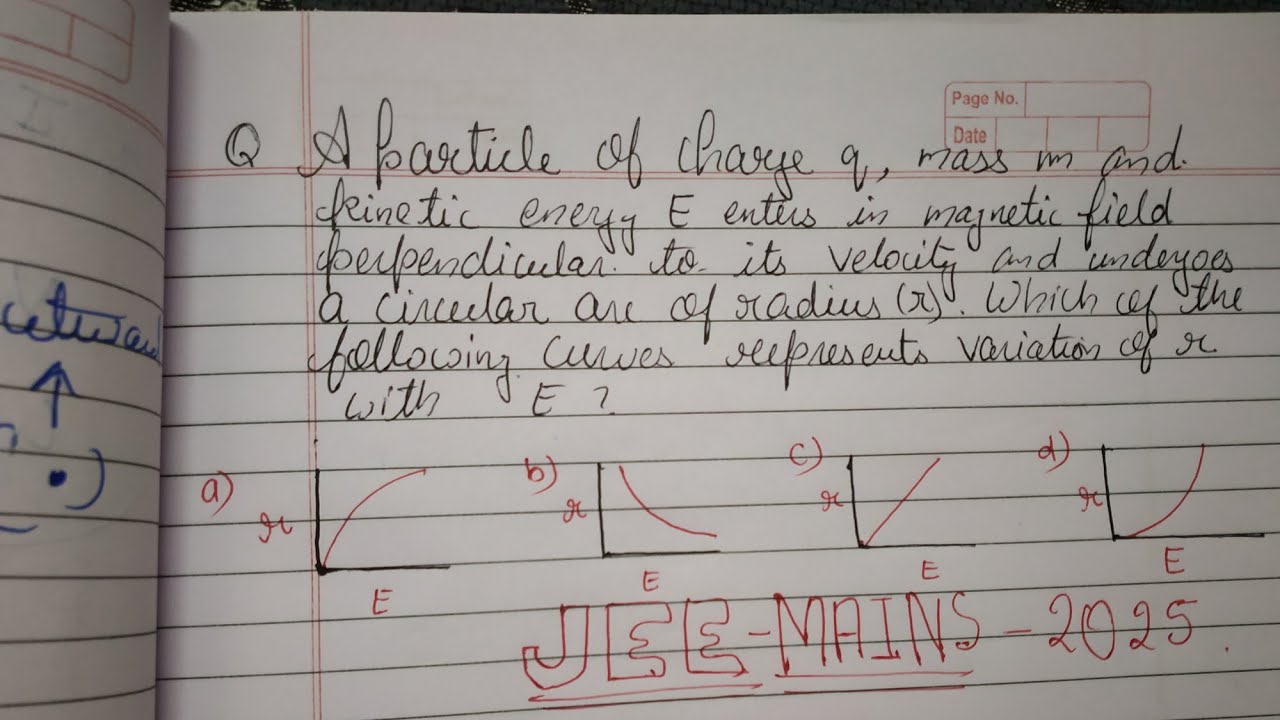 Page No.
Date
Q A particle of charge q, mass m and
kinetic energy E enters in magnetic field
perpendicular to its velocity and undergoes
a circular arc of radius (r). Which of the
following curves represents variation of r
with E ?
a) b) c) d)
r r r r
E E E E
JEE-MAINS-2025